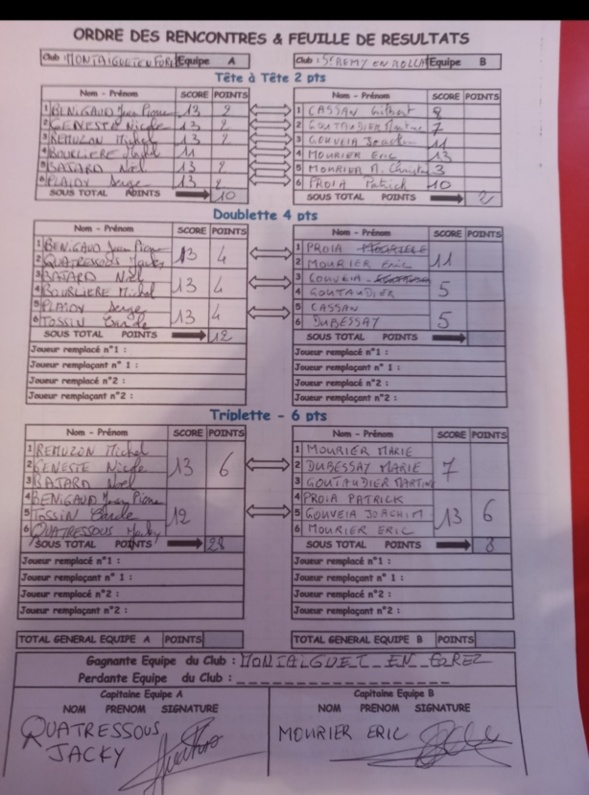 ORDRE DES RENCONTRES & FEUILLE DE RESULTATS
Club : MONTAIGUET EN FOREZ Equipe A
Club : St REMY EN ROLLAT Equipe B
Tête à Tête 2 pts
Nom - Prénom SCORE POINTS
1 BENIGAUD Jean Pierre 13 2
2 GENESTE Nicole 13 2
3 REMUZON Michel 13 2
4 BOURLIERE Michel 11
5 BATARD Noel 13 2
6 PLAIDY Serge 13 2
SOUS TOTAL POINTS 10
Nom - Prénom SCORE POINTS
1 CASSAN Gilbert 8
2 GOUTAUDIER Martine 7
3 GOUVEIA Joachim 11
4 MOURIER ERIC 13
5 MOURIER M. Christine 3
6 PROIA Patrick 10
SOUS TOTAL POINTS 2
Doublette 4 pts
Nom - Prénom SCORE POINTS
1 BENIGAUD Jean Pierre 13 4
2 QUATRESSOUS Jacky
3 BATARD Noel 13 4
4 BOURLIERE Michel
5 PLAIDY Serge 13 4
6 TOSSIN
SOUS TOTAL POINTS 12
Nom - Prénom SCORE POINTS
1 PROIA
2 MOURIER Eric 11
3 GOUVEIA
4 GOUTAUDIER 5
5 CASSAN
6 DUBESSAY 5
SOUS TOTAL POINTS
Joueur remplacé n°1 :
Joueur remplaçant n° 1 :
Joueur remplacé n°2 :
Joueur remplaçant n°2 :
Joueur remplacé n°1 :
Joueur remplaçant n° 1 :
Joueur remplacé n°2 :
Joueur remplaçant n°2 :
Triplette - 6 pts
Nom - Prénom SCORE POINTS
1 REMUZON Michel
2 GENESTE Nicole 13 6
3 BATARD Noel
4 BENIGAUD Jean Pierre
5 TOSSIN 12
6 QUATRESSOUS Jacky
SOUS TOTAL POINTS 28
Nom - Prénom SCORE POINTS
1 MOURIER MARIE
2 DUBESSAY MARIE 7
3 GOUTAUDIER MARTINE
4 PROIA PATRICK
5 GOUVEIA JOACHIM 13 6
6 MOURIER ERIC
SOUS TOTAL POINTS 8
Joueur remplacé n°1 :
Joueur remplaçant n° 1 :
Joueur remplacé n°2 :
Joueur remplaçant n°2 :
Joueur remplacé n°1 :
Joueur remplaçant n° 1 :
Joueur remplacé n°2 :
Joueur remplaçant n°2 :
TOTAL GENERAL EQUIPE A POINTS
TOTAL GENERAL EQUIPE B POINTS
Gagnante Equipe du Club : MONTAIGUET EN FOREZ
Perdante Equipe du Club :
Capitaine Equipe A
NOM PRENOM SIGNATURE
QUATRESSOUS
JACKY
Capitaine Equipe B
NOM PRENOM SIGNATURE
MOURIER ERIC